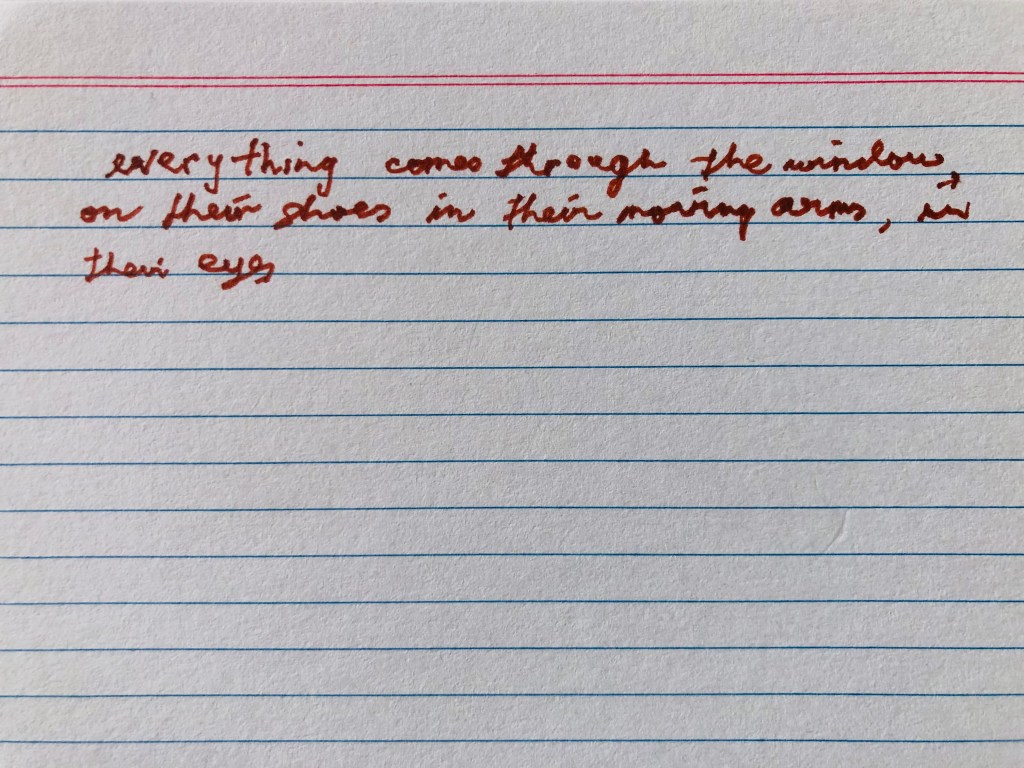 everything comes through the window,
on their shoes in their moving arms, in
their eyes